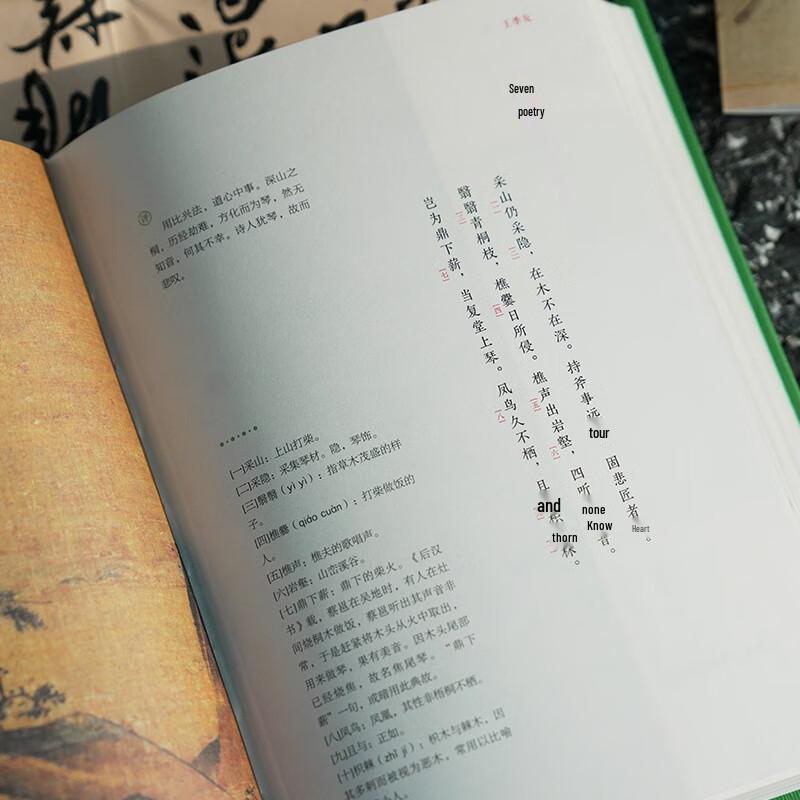 王季友
Seven
poetry
采山[一]仍采隐[二]，在木不在深。持斧事远 tour 因悲匠者 Heart 。
翳翳[三]青桐枝，樵爨[四]日所侵。樵声[五]出岩壑[六]，四听 none Know 音。
岂为鼎下薪[七]，当复堂上琴。凤鸟[八]久不栖，且 and 枳 thorn 林。
评 用比兴法，道心中事。深山之
桐，历经劫难，方化而为琴，然无
知音，何其不幸。诗人犹琴，故而
悲叹。
[一]采山：上山打柴。
[二]采隐：采集琴材。隐，琴饰。
[三]翳翳（yì yì）：指草木茂盛的样
子。
[四]樵爨（qiáo cuàn）：打柴做饭的
人。
[五]樵声：樵夫的歌唱声。
[六]岩壑：山峦溪谷。
[七]鼎下薪：鼎下的柴火。《后汉
书》载，蔡邕在吴地时，有人在灶
间烧桐木做饭，蔡邕听出其声音非
常，于是赶紧将木头从火中取出，
用来做琴，果有美音。因木头尾部
已经烧焦，故名焦尾琴。“鼎下
薪”一句，或暗用此典故。
[八]凤鸟：凤凰，其性非梧桐不栖。
[九]且与：正如。
[十]枳棘（zhǐ jí）：枳木与棘木，因
其多刺而被视为恶木，常用以比喻
小人。